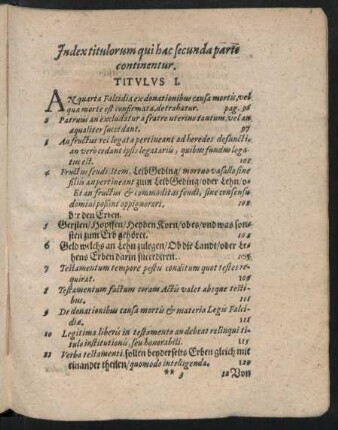 Index titulorum qui hac secunda parte
continentur.
TITVLVS I.
AN quarta Falcidia ex donationibus causa mortis, vel
qua morte est confirmata, detrahatur. pag. 96
2 Patruus an excludatur a fratre uterino tantum, vel an
æqualiter succedant. 97
3 An fructus rei legatæ pertineant ad heredes defuncti,
an vero cedant ipsis legatariis, quibus fundus lega-
tus est. 102
4 Fructus feudi. Item, LeibGeding/ mortuo vasallo sine
filiis an pertineant zum LeibGeding/ oder Lehn/
Et an fructus & commoditas feudi, sine consensu
domini possint oppignorari. 102
den Erben.
5 Gersten/ Hopffen/ Heyden Korn/ obes/ und was son-
sten zum Erb gehöret. 104
6 Geld welchs an Lehn zulegen/ Ob die Landt/ oder Le-
hens Erben darin succediren.
7 Testamentum tempore pestis conditum quot testes re-
quirat.
8 Testamentum factum coram Actis valet absque testi-
bus. 111
9 De donationibus causa mortis & materia Legis Falci-
diæ.
10 Legitima liberis in testamento an debeat relinqui ti-
tulo institutionis, seu honorabili. 115
11 Verba testamenti, sollen beyderseits Erben gleich mit
einander theilen/ quomodo intelligenda. 120
** 12 Von